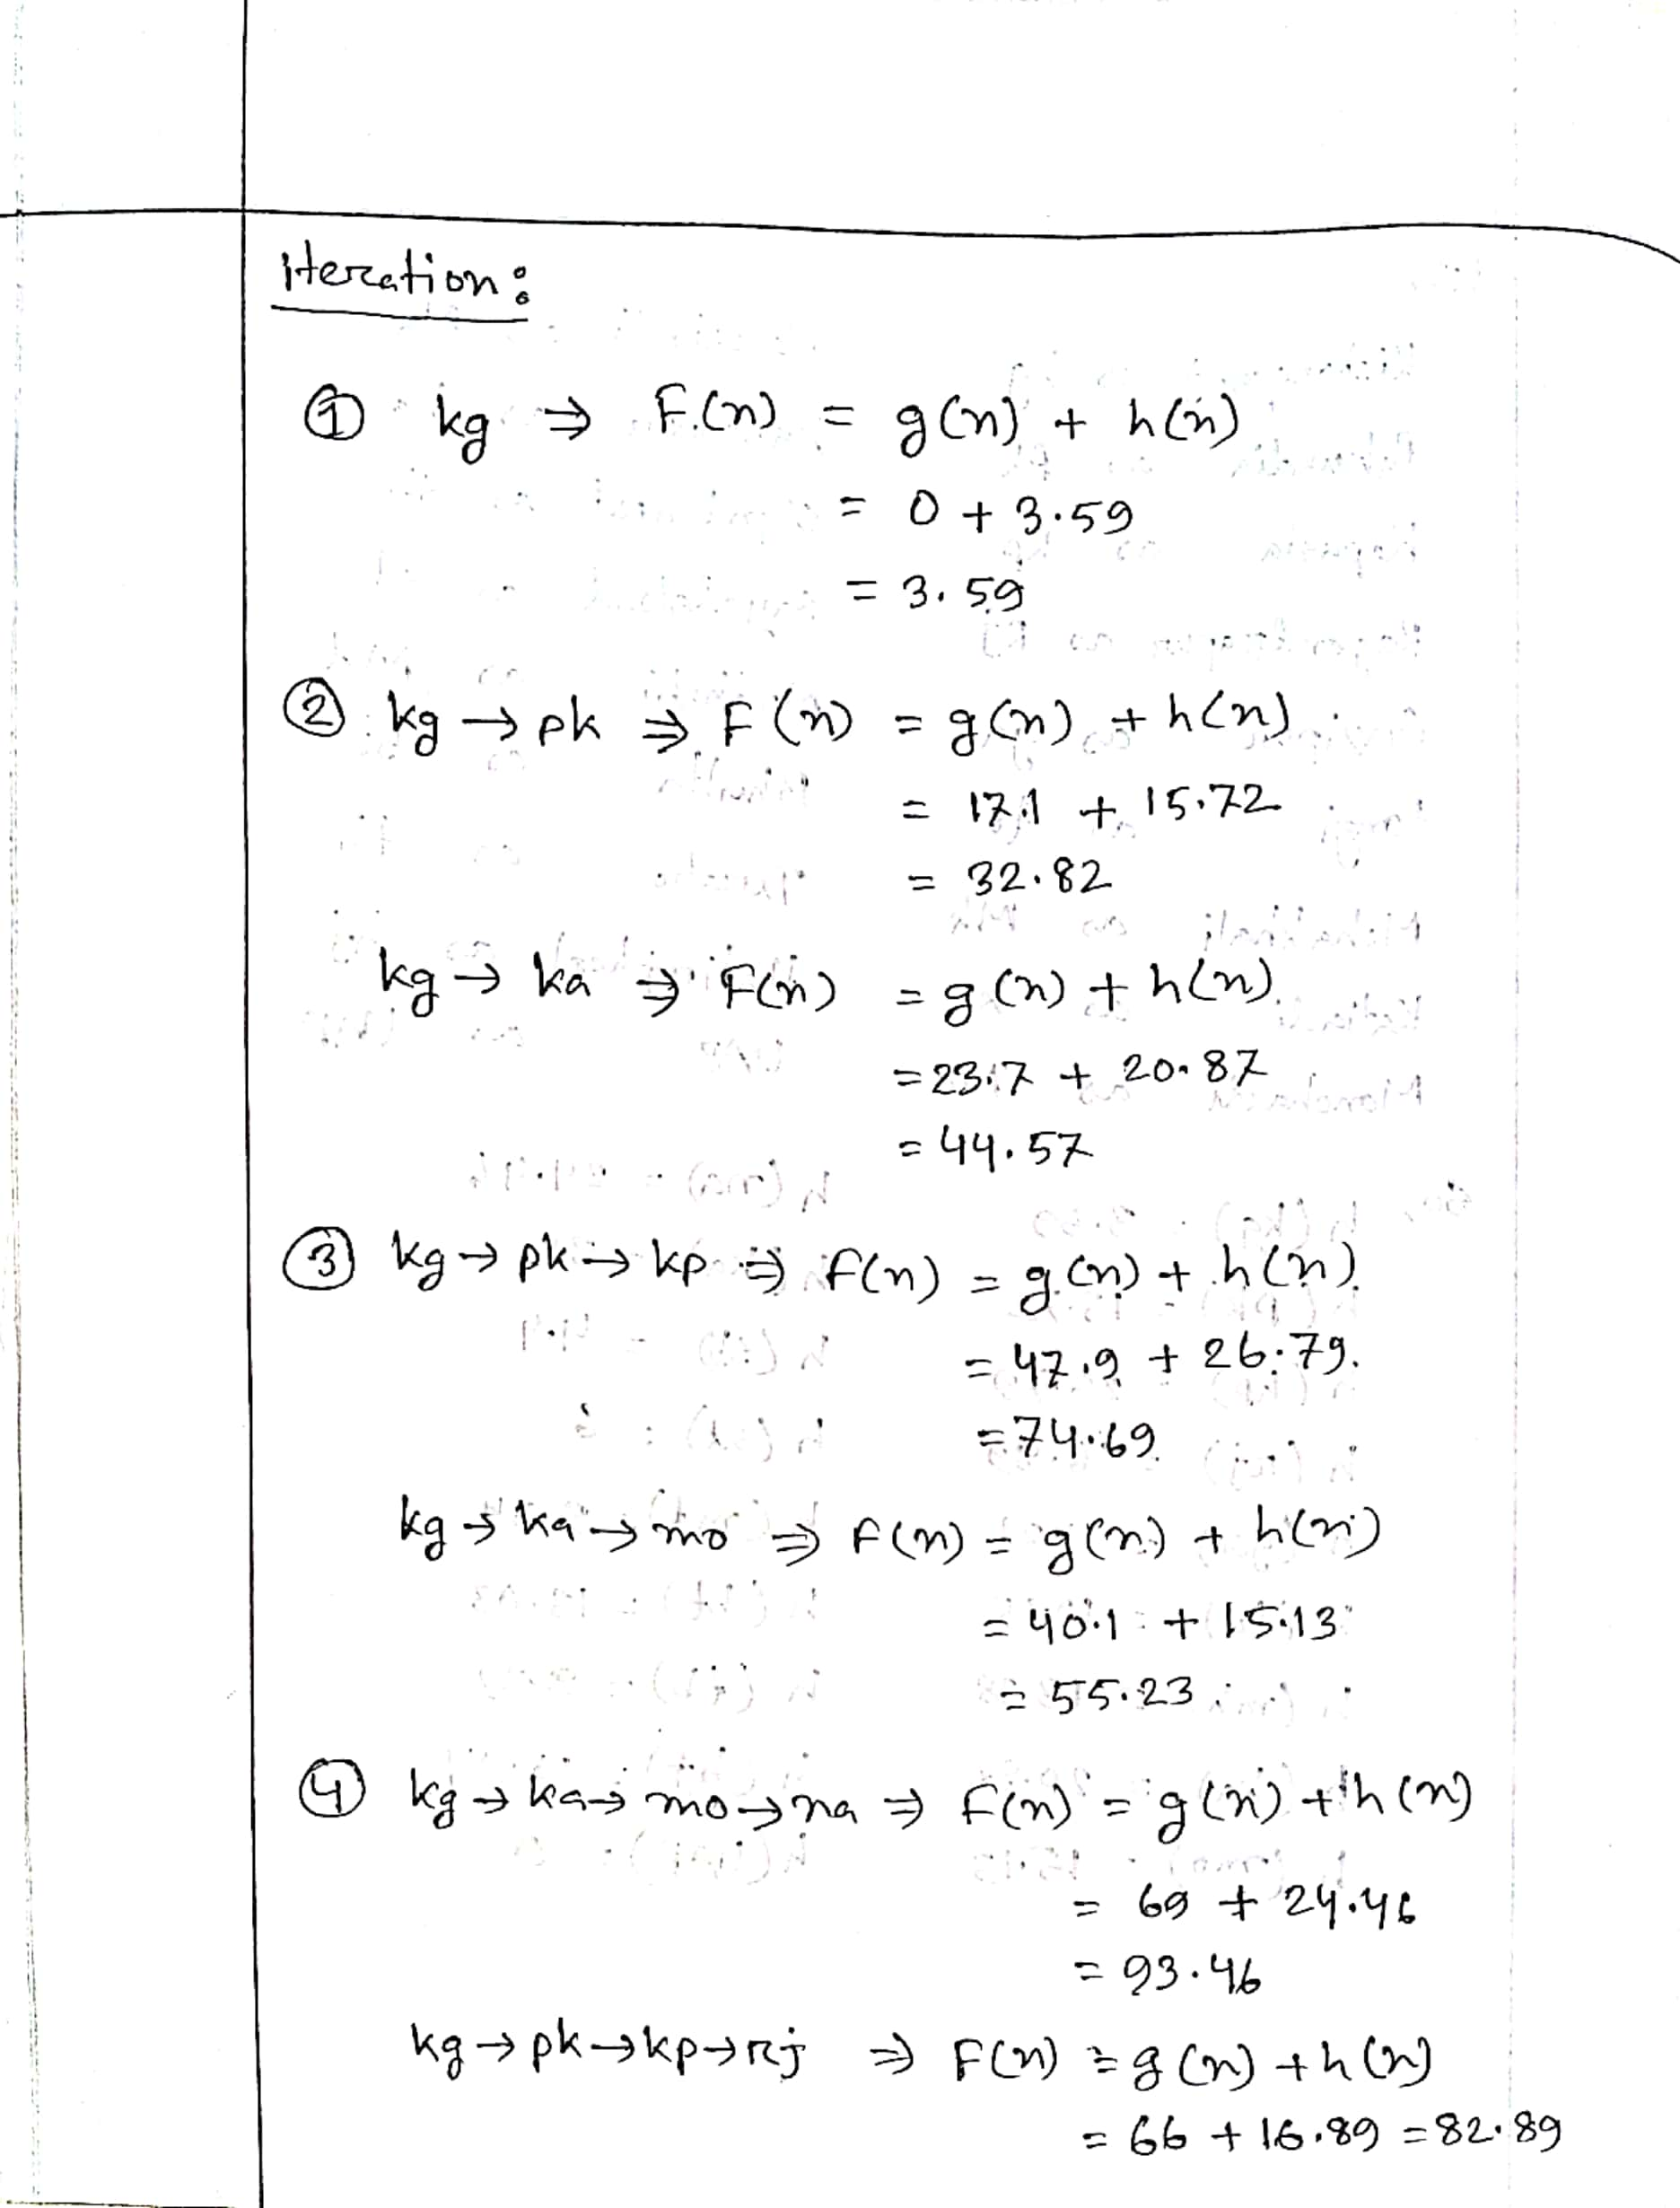 iteration:
① kg ⇒ F(n) = g(n) + h(n)
= 0 + 3.59
= 3.59
② kg → pk ⇒ F(n) = g(n) + h(n)
= 17.1 + 15.72
= 32.82
kg → ka ⇒ F(n) = g(n) + h(n)
= 23.7 + 20.87
= 44.57
③ kg → pk → kp ⇒ F(n) = g(n) + h(n)
= 47.9 + 26.79
= 74.69
kg → ka → mo ⇒ F(n) = g(n) + h(n)
= 40.1 + 15.13
= 55.23
④ kg → ka → mo → na ⇒ F(n) = g(n) + h(n)
= 69 + 24.46
= 93.46
kg → pk → kp → rj ⇒ F(n) = g(n) + h(n)
= 66 + 16.89 = 82.89